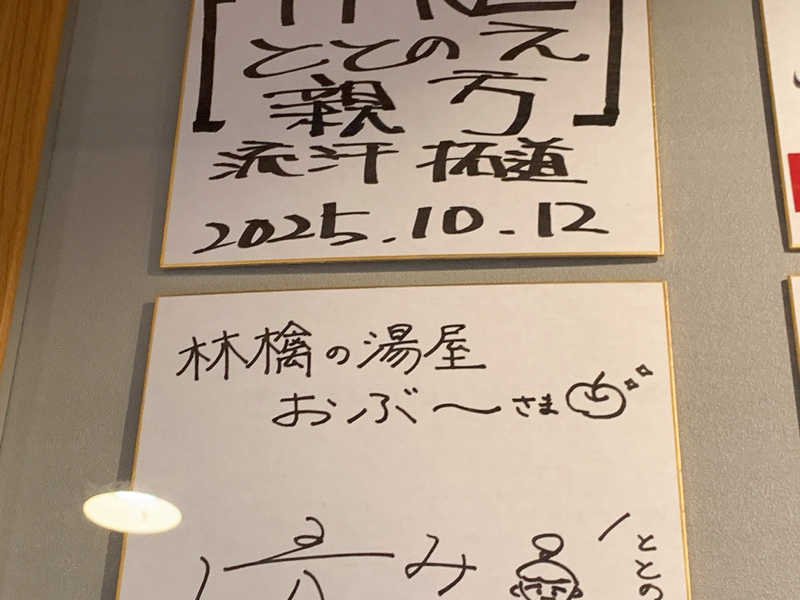 ととのえ
親方
流汗 拓道
2025.10.12
林檎の湯屋
おぶ〜さま
み
ととの